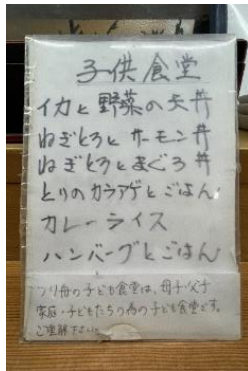 子供食堂
イカと野菜の天丼
ねぎとろとサーモン丼
ねぎとろとまぐろ丼
とりのカラアゲとごはん
カレーライス
ハンバーグとごはん
の子ども食堂は、母子・父子
家庭・子どもたちの為の子ども食堂です。
ご理解下さい。